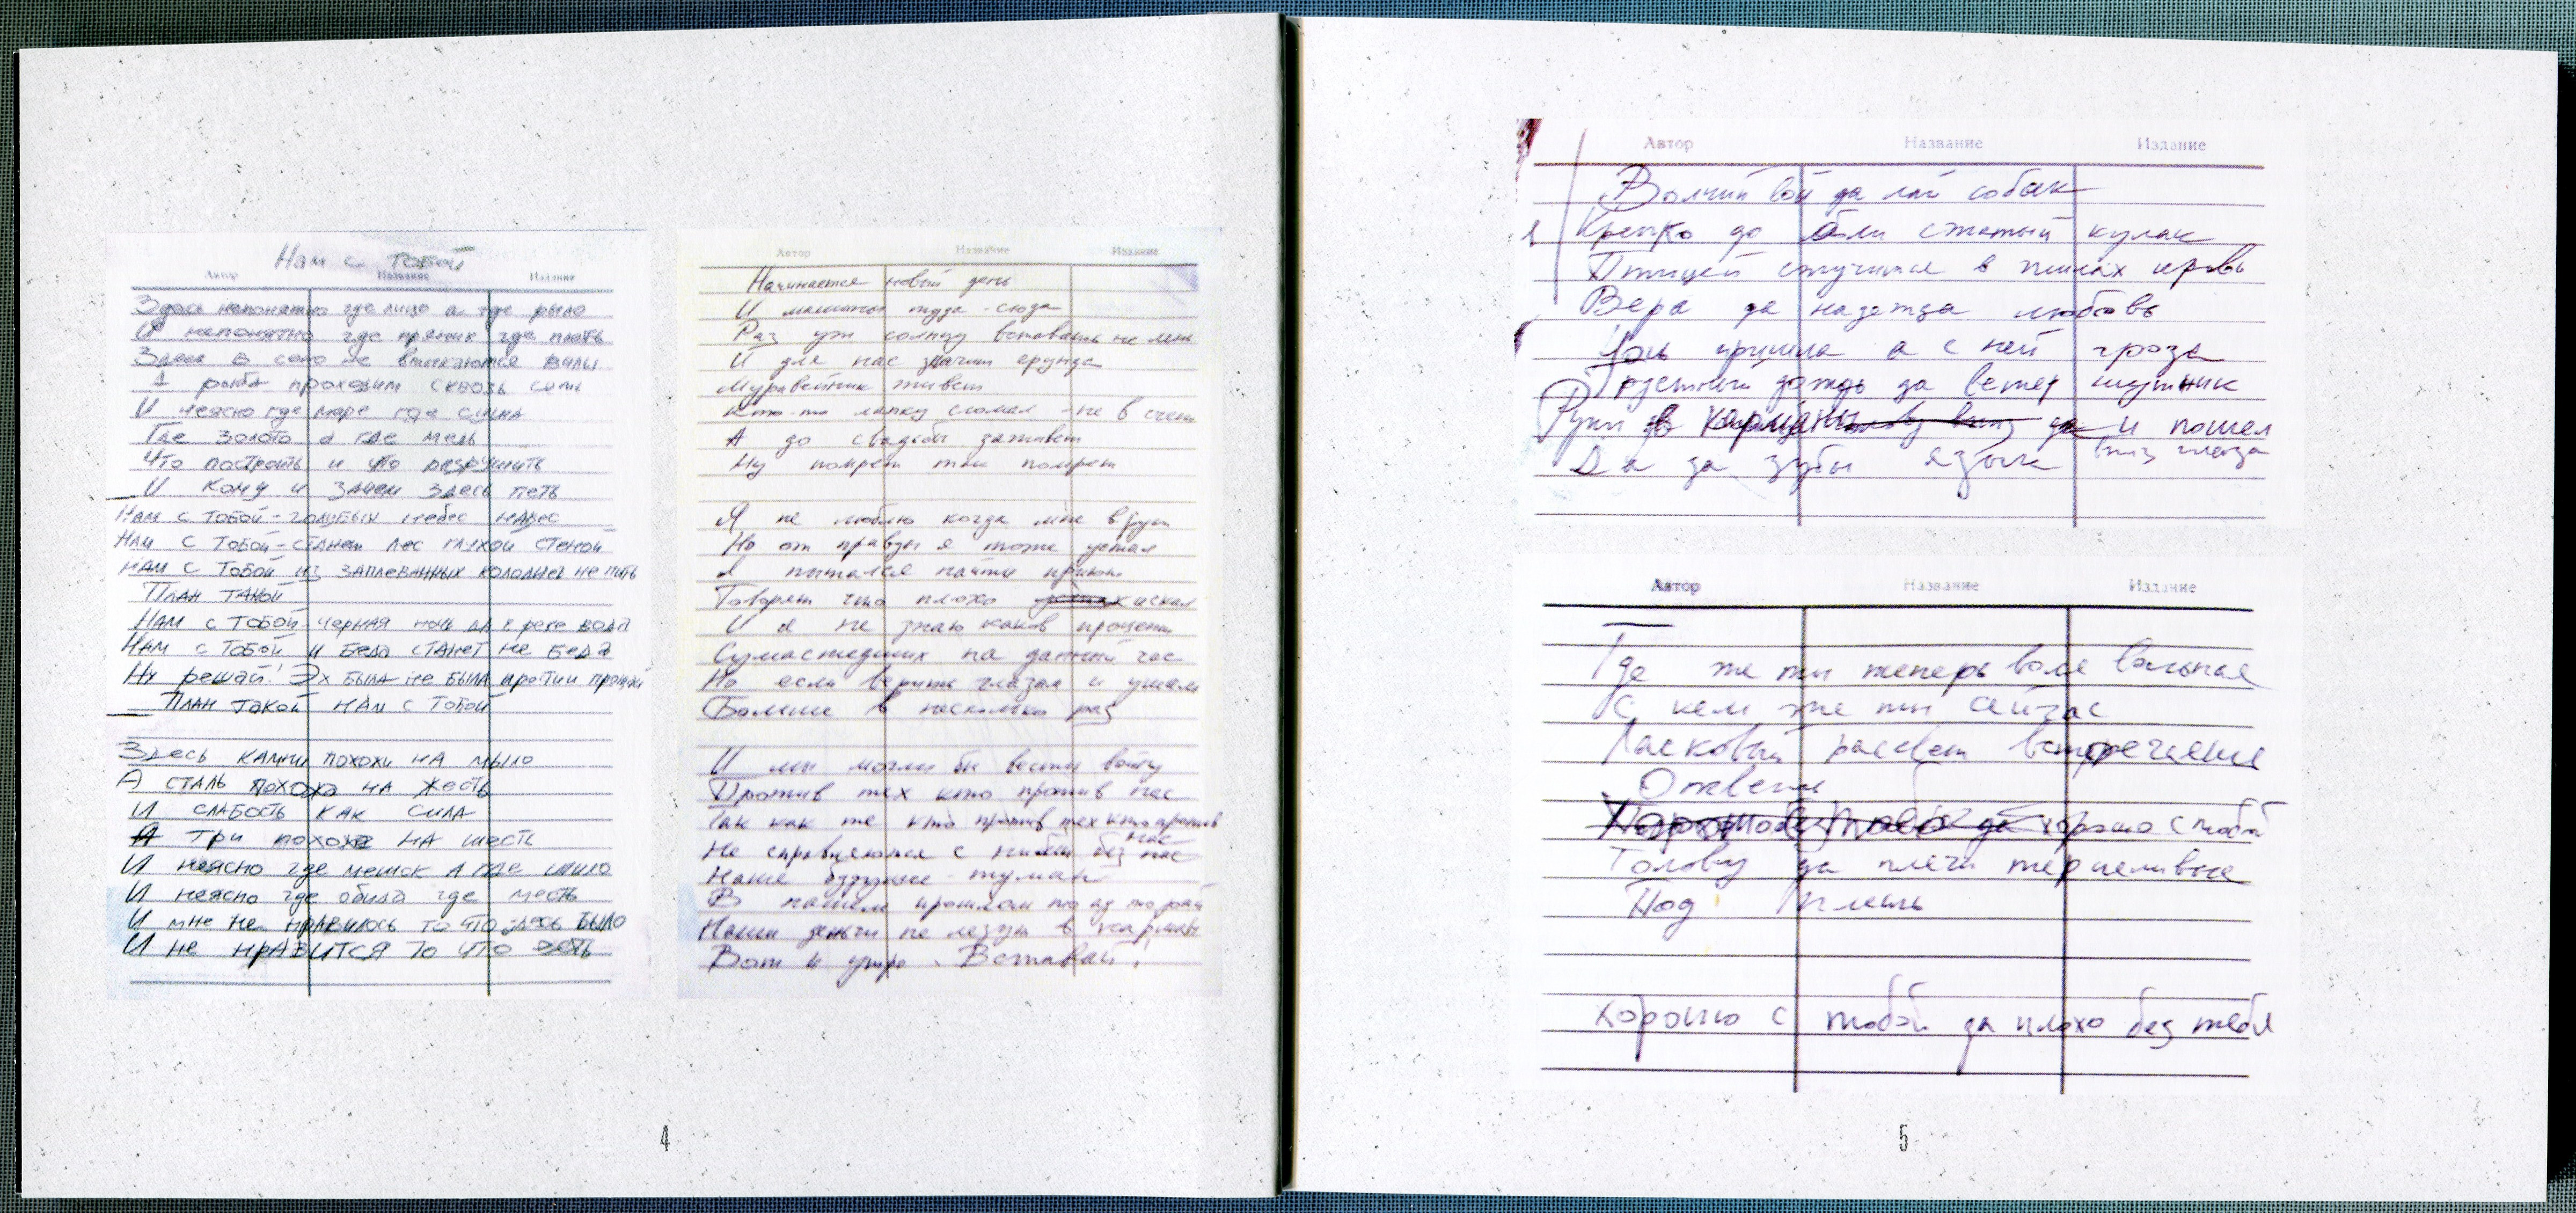 Нам с тобой
Автор Название Издание
Здесь непонятно где лицо а где рыло
И непонятно где пряник где плеть
Здесь в сено не втыкаются вилы
А рыба проходит сквозь сеть
И неясно где море где суша
Где золото а где медь
Что построить и что разрушить
И кому и зачем здесь петь
Нам с тобой - голубых небес навес
Нам с тобой - станет лес глухой стеной
Нам с тобой из заплеванных колодцев не пить
План такой
Нам с тобой - черная ночь да в реке вода
Нам с тобой и беда станет не беда
Ну решай! Эх была не была прости прощай
План такой нам с тобой
Здесь камни похожи на мыло
А сталь похожа на жесть
И слабость как сила
А три похоже на шесть
И неясно где мешок а где шило
И неясно где обида где месть
И мне не нравилось то что здесь было
И не нравится то что есть
Автор Название Издание
Начинается новый день
И машины туда-сюда
Раз уж солнцу вставать не лень
И для нас значит ерунда
Муравейник живет
Кто-то лапку сломал - не в счет
А до свадьбы заживет
Ну помрет так помрет
Я не люблю когда мне врут
Но от правды я тоже устал
Я пытался найти приют
Говорят что плохо искал
И я не знаю каков процент
Сумасшедших на данный час
Но если верить глазам и ушам
Больше в несколько раз
И мы могли бы вести войну
Против тех кто против нас
Так как те кто против тех кто против
нас
Не справляются с ними без нас
Наше будущее - туман
В нашем прошлом то ад то рай
Наши деньги не лезут в карман
Вот и утро. Вставай!
4
Автор Название Издание
Волчий вой да лай собак
Крепко до боли сжатый кулак
Птицей стучится в жилах кровь
Вера да надежда любовь
пришла а с ней гроза
Грустный дождь да ветер шутник
Руки в карманы да и пошел
вниз глаза
Да за зубы язык
Автор Название Издание
Где же ты теперь воля вольная
С кем же ты сейчас
Ласковый рассвет встречаешь
Ответь
хорошо с тобой
Голову да плечи терпеливые
Под плеть
хорошо с тобой да плохо без тебя
5